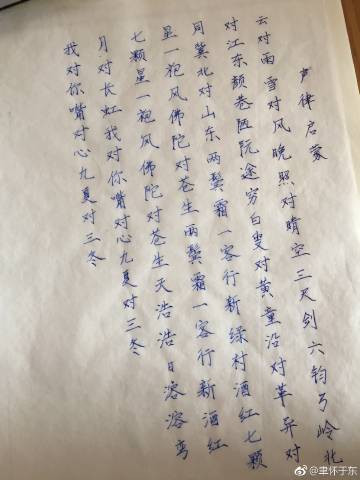 声律启蒙
云对雨雪对风晚照对晴空三尺剑六钧弓岭北
对江东颜巷陋阮途穷白叟对黄童沿对革异对
同冀北对山东两鬓霜一客行新绿村酒红七颗
星一袍风佛陀对苍生两鬓霜一客行新酒红
七颗星一袍风佛陀对苍生天浩浩日溶溶弯
月对长虹我对你嘴对心九夏对三冬
我对你嘴对心九夏对三冬
@聿怀于东